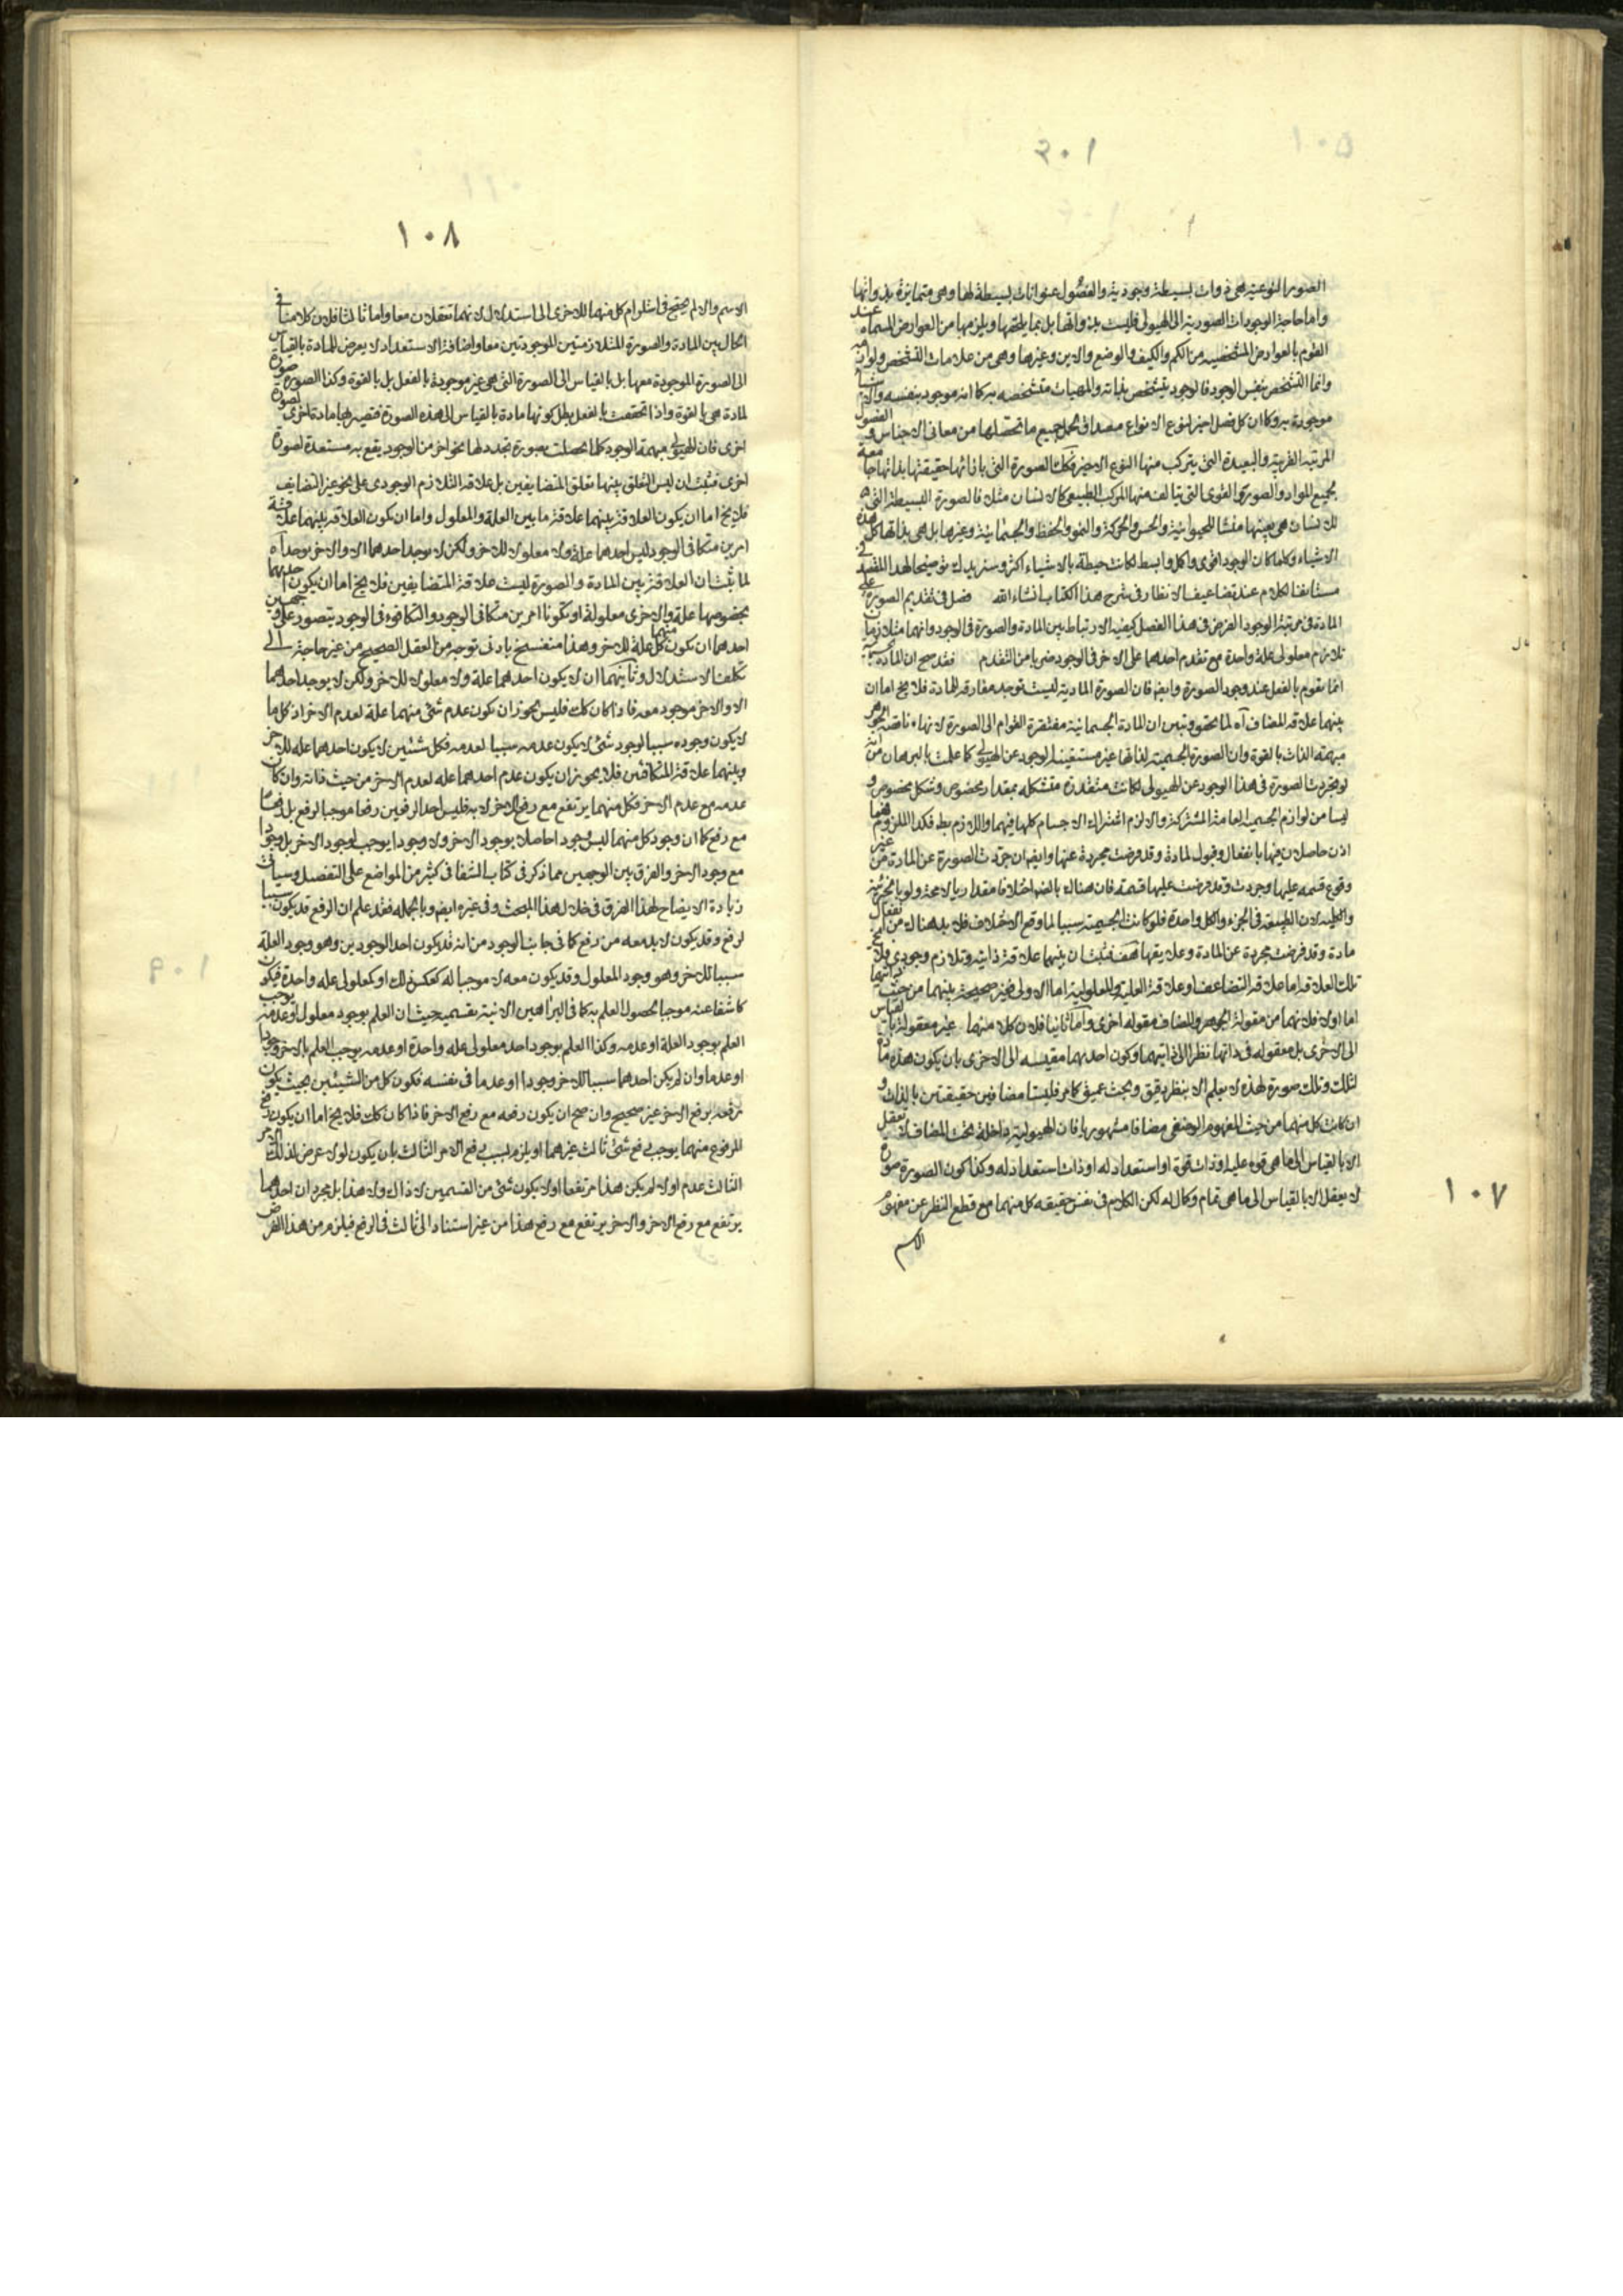 ١٠٧
الصور النوعية هى ذوات بسيطة وجودية والفصول عنوانات بسيطة لها وهى متمايزة بذواتها
واما حاجة الوجودات الصورية الى الهيولى فليست بذواتها بل بما يلحقها ويلزمها من العوارض المسماة عند
القوم بالعوارض المشخصية من الكم والكيف والوضع والاين وغيرها وهى من علامات التشخص ولوازمه
وانما التشخص بنفس الوجود فالوجود يتشخص بذاته والمهيات متشخصه به كما انه موجود بنفسه والاشياء
موجودة به وكما ان كل فصل اخير لنوع الانواع مصداق لحمل جميع ما تحصلها من معانى الاجناس والفصول
المرتبه القريبة والبعيدة التى يتركب منها النوع الاخير فكك الصورة التى باذائها حقيقتها بذاتها جامعة
لجميع المواد والصور والقوى التى يتالف منها المركب الطبيعى كالانسان مثلا فالصورة البسيطة التى
للانسان هى بعينها منشا للحيوانية والحس والحركة والنمو والحفظ والجسمانية وغيرها بل هى بذاتها كل هذه
الاشياء وكلما كان الوجود اقوى واكمل وابسط لكانت حيطته بالاشياء اكثر وسنزيدك توضيحا لهذا المقصد فى
مستانف الكلام عند تضاعيف الانظار فى شرح هذا الكتاب انشاء الله فصل فى تقديم الصورة على
المادة فى مرتبة الوجود الغرض فى هذا الفصل كيفية الارتباط بين المادة والصورة فى الوجود وانهما متلازمان
تلازم معلولى علة واحدة مع تقدم احدهما على الاخر فى الوجود ضربا من التقدم فقد صح ان المادة
انما تقوم بالفعل عند وجود الصورة وايضا فان الصورة المادية ليست توجد مفارقه للمادة فلا يخ اما ان
بينهما علاقه المضاف آه لما تحقق وتبين ان المادة الجسمانية مفتقرة القوام الى الصورة لانها ناقصة الجوهر
مبهمة الذات بالقوة وان الصورة الجسمية لذاتها غير مستغنية الوجود عن الهيولى كما علمت بالبرهان من انه
لو تجردت الصورة فى هذا الوجود عن الهيولى لكانت متقدرة متشكله بمقدار مخصوص وشكل مخصوص و
ليسا من لوازم الجسمية العامة المشتركة والا لزم اشتراك الاجسام كلها فيهما واللازم بط فكذا الملزوم فهما
اذن حاصلان فيها بانفعال وقبول لمادة وقد فرضت مجردة عنها وايضا ان جردت الصورة عن المادة من غير
وقوع قسمه عليها وجردت وقد فرضت عليها قسمة فان هناك بالضر اختلافا مقداريا لا محة ولو بالجزئية
والكلية لان الطبيعة فى الجزء والكل واحدة فلو كانت الجسمية سببا لما وقع الاختلاف فلا بد هناك من
مادة وقد فرضت مجردة عن المادة وعلايقها هف فثبت ان بينهما علاقة ذاتية وتلازم وجودى فلا يخ
تلك العلاقه اما علاقه التضايف او علاقة العلية والمعلولية اما الاولى فغير صحيحة بينهما من حيث ذاتيهما
اما اولا فلانهما من مقولة الجوهر والمضاف مقوله اخرى واما ثانيا فلان كلا منهما غير معقوله بالقياس
الى الاخرى بل معقوله فى ذاتها نظرا الى ذاتيهما وكون احديهما مقيسه الى الاخرى بان يكون هذه مادة
لتلك وتلك صورة لهذه لا يعلم الا بنظر دقيق وبحث عميق كما مر فليستا مضافين حقيقتين بالذات و
ان كانت كل منهما من حيث المفهوم الوصفى مضافا مشهوريا فان الهيولية داخلة تحت المضاف لا تعقل
الا بالقياس الى ما هى قوه عليه او ذات قوة او استعداد له او ذات استعداد له وكذا كون الصورة صورة
لا يعقل الا بالقياس الى ما هى تمام وكمال له لكن الكلام فى نفس حقيقه كل منهما مع قطع النظر عن مفهوم
الاسم
١٠٨
الاسم والا لم يحتج فى استلزام كل منهما للاخرى الى استدلال لانهما تعقلان معا واما ثالثا فلان كلامنا فى
الحال بين المادة والصورة المتلازمتين الموجودتين معا واضافة الاستعداد لا يعرض للمادة بالقياس
الى الصورة الموجودة معها بل بالقياس الى الصورة التى هى غير موجودة بالفعل بل بالقوة وكذا الصورة صورة
لمادة هى بالقوة واذا تحققت بالفعل بطل كونها مادة بالقياس الى هذه الصورة فتصير لها مادة اخرى لصورة
اخرى فان الهيولى مبهمة الوجود كلما تحصلت بصورة تجدد لها نحو اخر من الوجود يقع به مستعدة لصورة
اخرى فثبت ان ليس التعلق بينهما تعلق المتضايفين بل علاقه التلازم الوجودى على نحو غير التضايف
فلا يخ اما ان يكون العلاقة بينهما علاقة ما بين العلة والمعلول واما ان تكون العلاقة بينهما علاقة
امرين متكافى الوجود ليس احدهما علة ولا معلولا للاخر ولكن لا يوجد احدهما الا والاخر يوجد آه
لما ثبت ان العلاقة بين المادة والصورة ليست علاقة المتضايفين فلا يخ اما ان يكون احديهما
بخصوصها علة والاخرى معلولة او تكونا امرين متكافى الوجود والتكافوء فى الوجود يتصور على وجهين
احدهما ان تكون كل منهما علة للاخر وهذا منفسخ بادنى توجه من العقل الصحيح من غير حاجة الى
تكلف الاستدلال وثانيهما ان لا يكون احدهما علة ولا معلولا للاخر ولكن لا يوجد احدهما
الا والاخر موجود معه فاذا كان كك فليس يجوز ان يكون عدم شئ منهما علة لعدم الاخر اذ كل ما
لا يكون وجوده سببا لوجود شئ لا يكون عدمه سببا لعدمه فكل شيئين لا يكون احدهما علة للاخر
وبينهما علاقة المتكافئين فلا يجوز ان يكون عدم احدهما علة لعدم الاخر من حيث ذاته وان كان
عدمه مع عدم الاخر فكل منهما يرتفع مع رفع الاخر لا به فليس احد الرفعين رفعا موجبا لرفع بل رفعا
مع رفع كما ان وجود كل منهما ليس وجودا حاصلا بوجود الاخر ولا وجودا يوجب لوجود الاخر بل وجودا
مع وجود الاخر والفرق بين الوجهين مما ذكر فى كتاب الشفا فى كثير من المواضع على التفصيل وسيأتى
زيادة الايضاح لهذا الفرق فى خلال هذا المبحث وفى غيره ايضو وبالجمله فقد علم ان الرفع قد يكون سببا
لرفع وقد يكون لا بد معه من رفع كما فى جانب الوجود من انه قد يكون احد الوجودين وهو وجود العلة
سببا للاخر وهو وجود المعلول وقد يكون معه لا موجبا له كعكس ذلك او كمعلولى علة واحدة فيكون
كاشفا عنه موجبا لحصول العلم به كما فى البراهين الانية بقسميه حيث ان العلم بوجود معلول او عدمه يوجب
العلم بوجود العلة او عدمه وكذا العلم بوجود احد معلولى علة واحدة او عدمه يوجب العلم بالاخر وجودا
او عدما وان لم يكن احدهما سببا للاخر وجودا او عدما فى نفسه فكون كل من الشيئين بحيث يكون
رفعه يرفع الاخر غير صحيح وان صح ان يكون رفعه مع رفع الاخر فاذا كان كك فلا يخ اما ان يكون رفع
المرفوع منهما يوجب رفع شئ ثالث غيرهما او يلزم بسبب رفع الامر الثالث بان يكون لولا عرض لذلك الامر
الثالث عدم او لا لم يكن هذا مرتفعا او لا يكون شئ من القسمين لا ذاك ولا هذا بل مجرد ان احدهما
يرتفع مع رفع الاخر والاخر يرتفع مع رفع هذا من غير استناد الى ثالث فى الرفع فيلزم من هذا الفرض